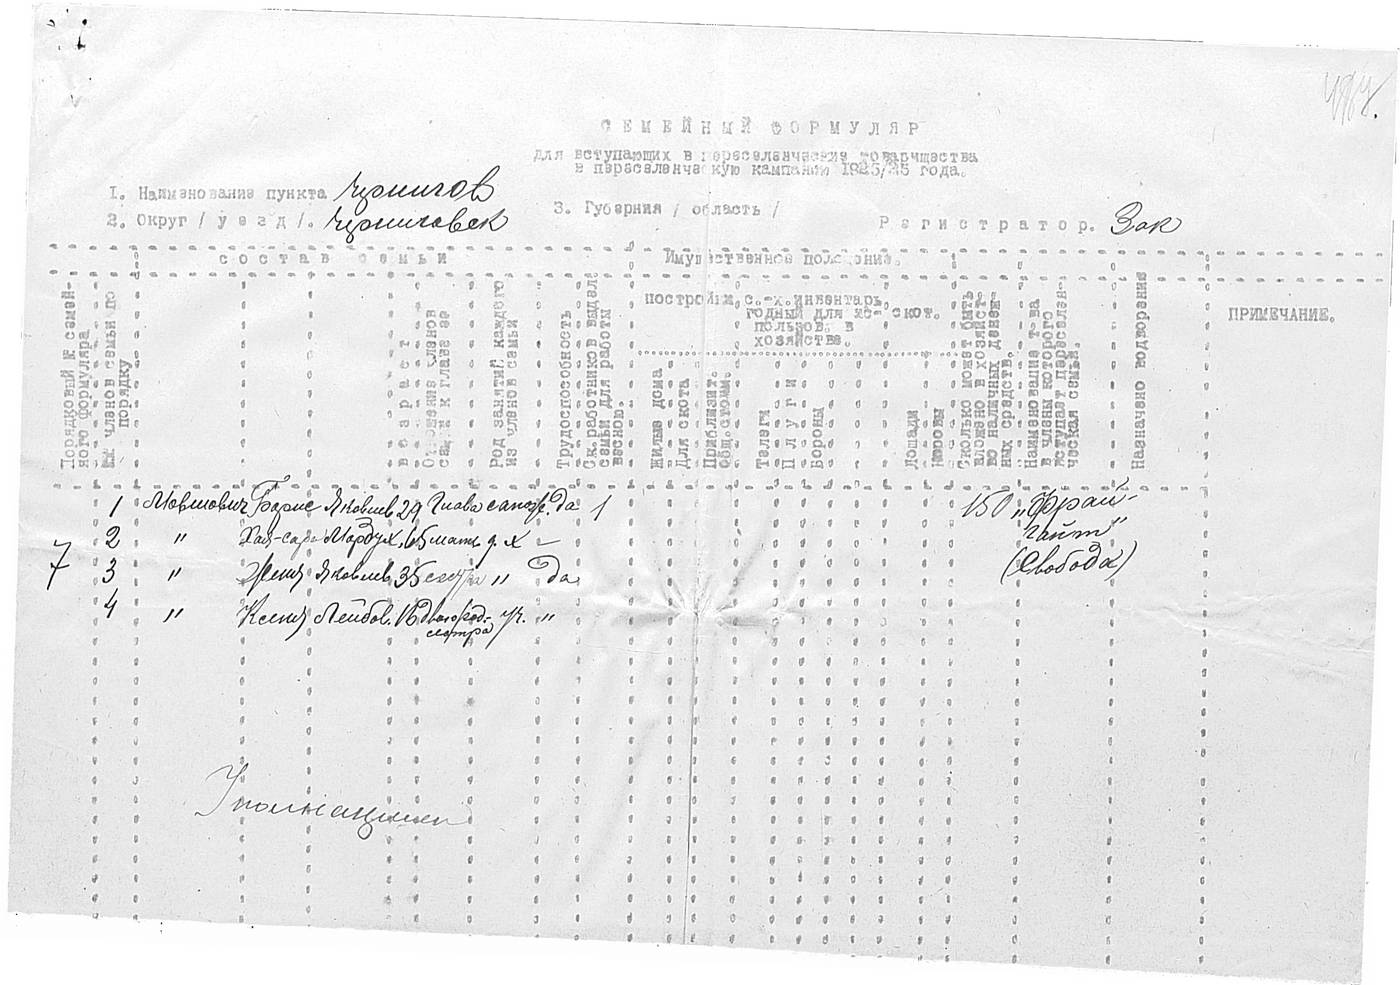 СЕМЕЙНЫЙ ФОРМУЛЯР
для вступающих в переселенческие товарищества
в переселенческую кампанию 1925/26 года.
1. Наименование пункта Чернигов
2. Округ / уезд /. Черниговск
3. Губерния / область /
Регистратор. Зак
СОСТАВ СЕМЬИ
Имущественное положение.
Порядковый № семей-
ного формуляра
№№ членов семьи по
порядку
возраст
Отношение членов
семьи к главе ее
Род занятий каждого
из членов семьи
Трудоспособность
Ск.работников выдел.
семьи для работы
весною.
постройки
с.-х.инвентарь
годный для ис-
пользов. в
хозяйстве.
скот.
Жилые дома
Для скота
Приблизит.
общ.стоим.
Телеги
Плуги
Бороны
Лошади
Коровы
Сколько может быть
вложено в хозяйст-
во наличных денеж-
ных средств.
Наименование т-ва
в члены которого
вступает переселен-
ческая семья.
Назначено водворение
ПРИМЕЧАНИЕ.
1 Борис Яковлев. 29 Глава сапож. да 1 150 „Фрай-
2 " Хая-Сара Мордух. 65 мать д.х — гайт"
7 3 " Яковлев. 35 сестра " да (Свобода)
4 " Ксения Лейбов. 16 двоюрод- уч. "
сестра